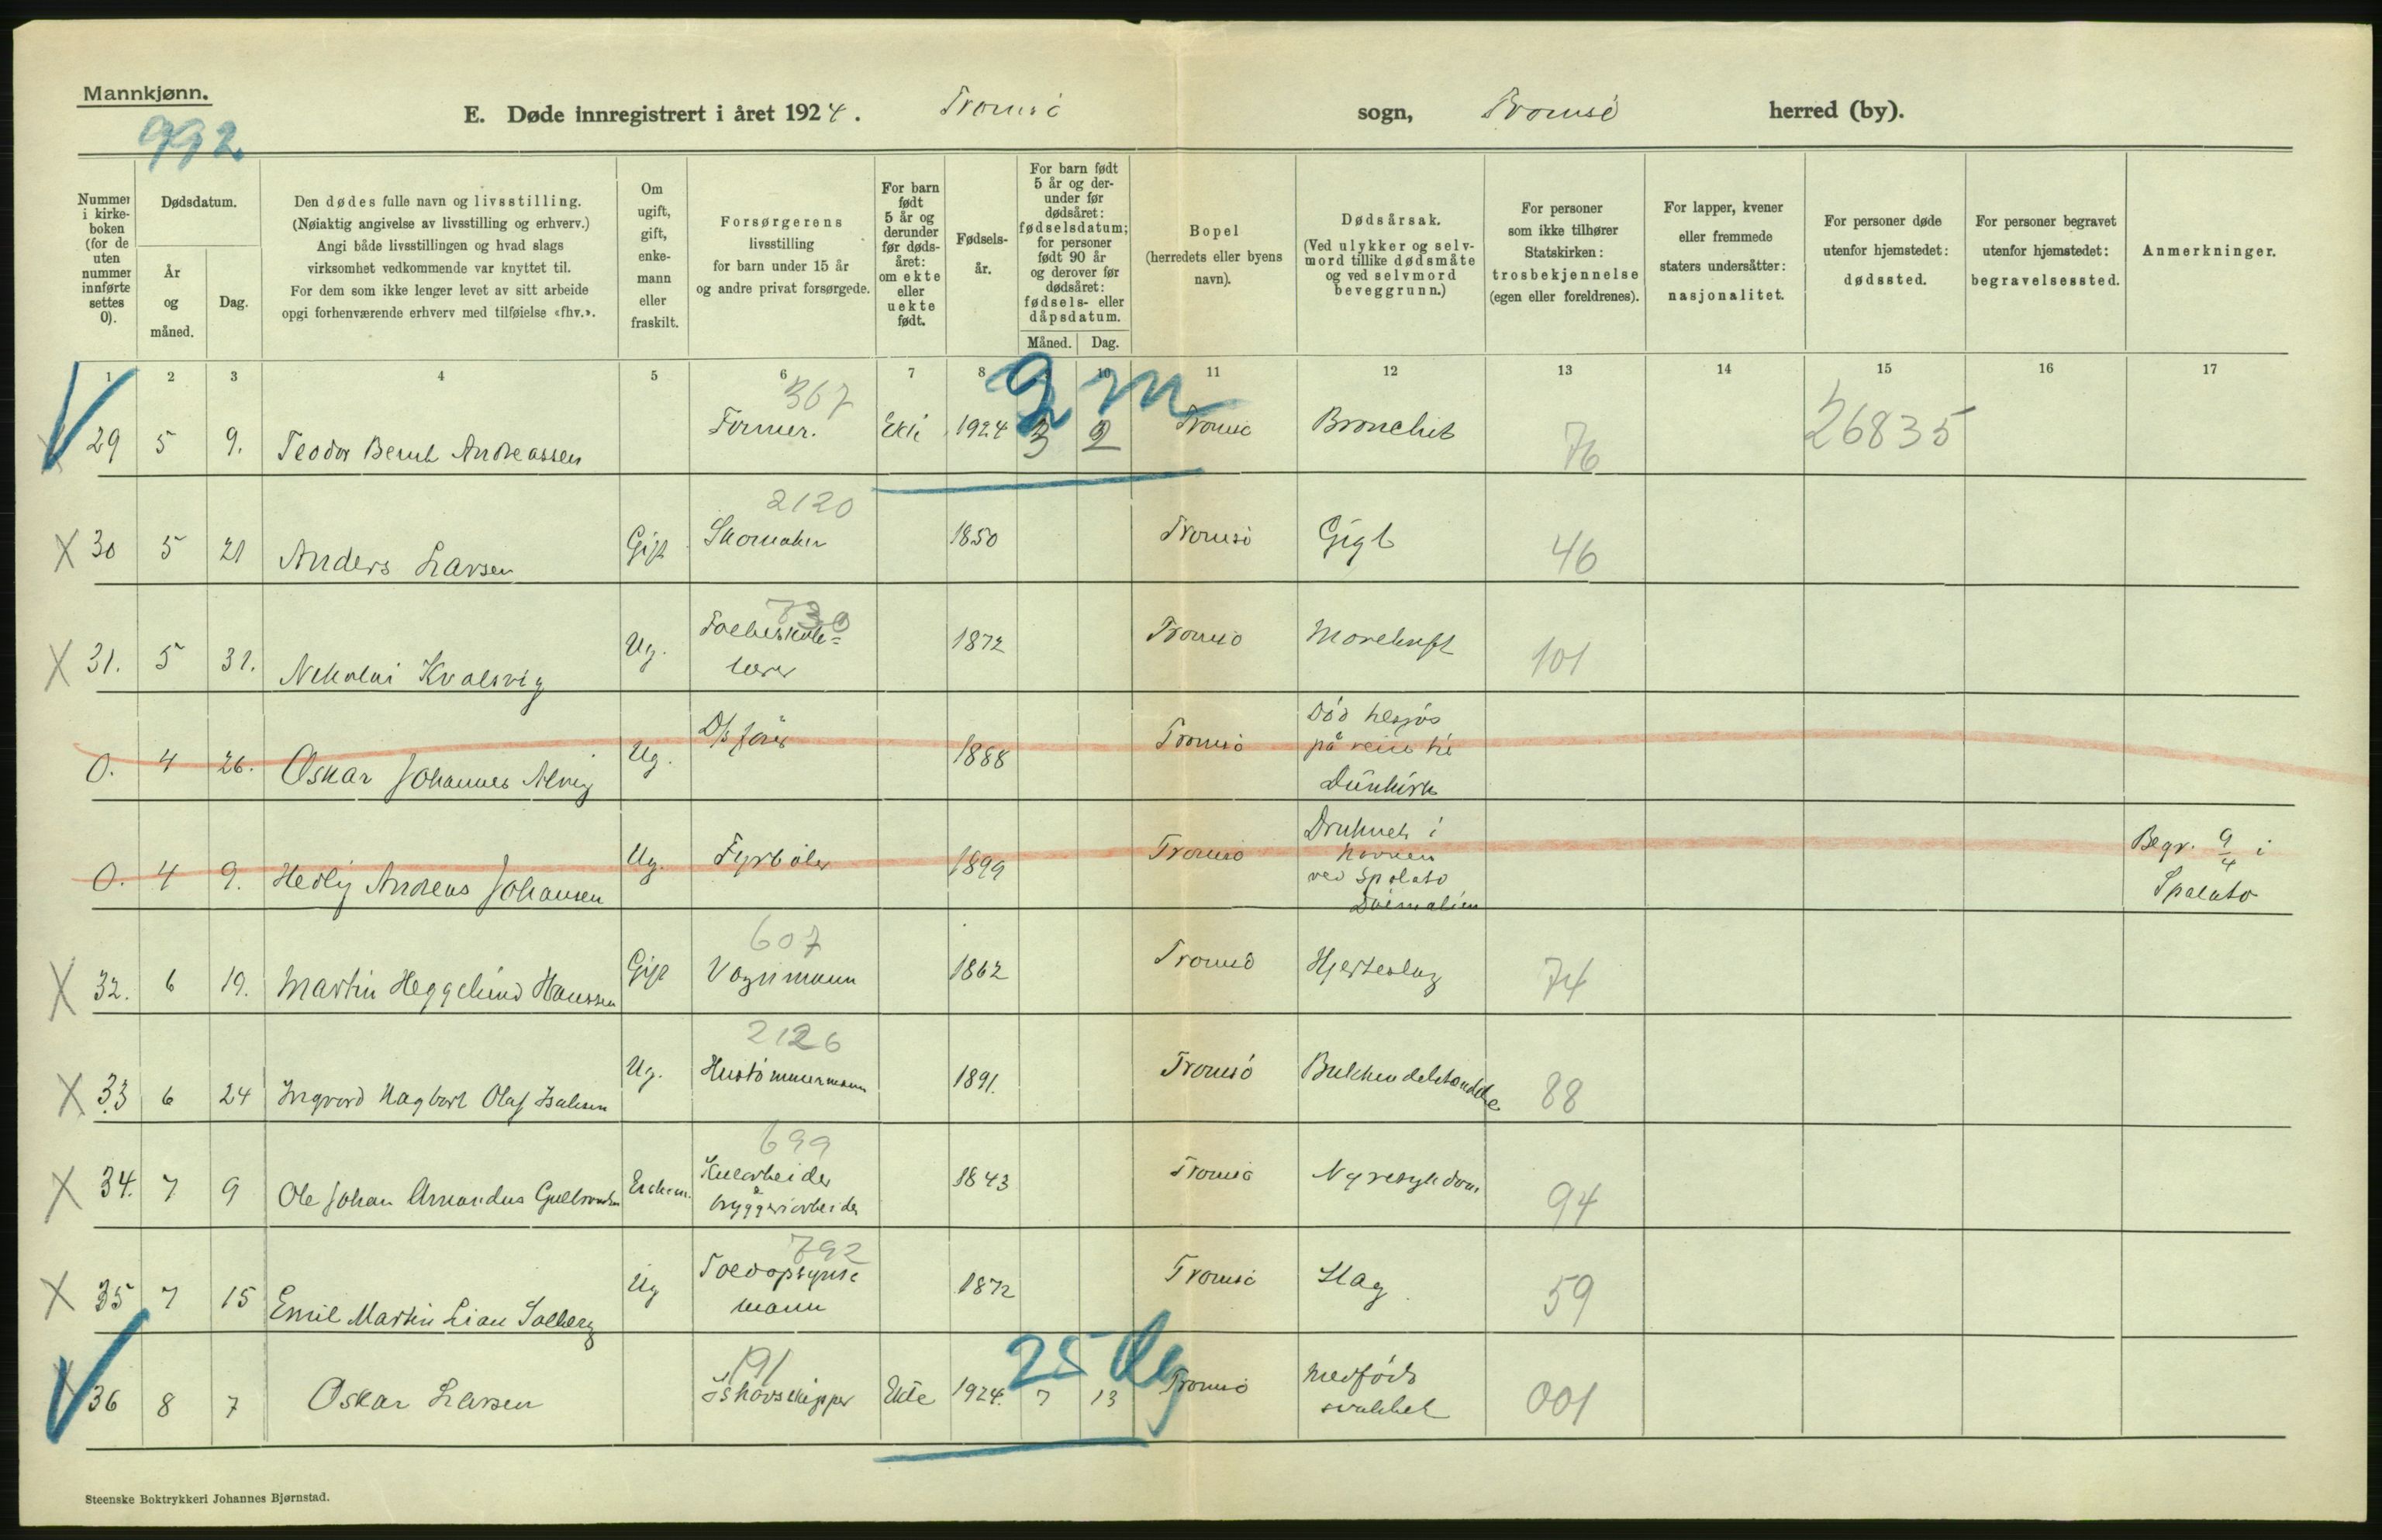 Mannkjønn.
992.
E. Døde innregistrert i året 1924. Tromsö sogn, Tromsö herred (by).
Nummer i kirkeboken (for de uten nummer innførte settes 0).
Dødsdatum.
År og måned.
Dag.
Den dødes fulle navn og livsstilling.
(Nøiaktig angivelse av livsstilling og erhverv.)
Angi både livsstillingen og hvad slags
virksomhet vedkommende var knyttet til.
For dem som ikke lenger levet av sitt arbeide
opgi forhenværende erhverv med tilføielse «fhv.».
Om ugift, gift, enkemann eller fraskilt.
Forsørgerens
livsstilling
for barn under 15 år
og andre privat forsørgede.
For barn født 5 år og derunder før dødsåret: om ekte eller uekte født.
Fødselsår.
For barn født 5 år og derunder før dødsåret: fødselsdatum; for personer født 90 år og derover før dødsåret: fødsels- eller dåpsdatum.
Måned. Dag.
Bopel
(herredets eller byens
navn).
Dødsårsak.
(Ved ulykker og selvmord tillike dødsmåte og ved selvmord beveggrunn.)
For personer
som ikke tilhører
Statskirken:
trosbekjennelse
(egen eller foreldrenes).
For lapper, kvener
eller fremmede
staters undersåtter:
nasjonalitet.
For personer døde
utenfor hjemstedet:
dødssted.
For personer begravet
utenfor hjemstedet:
begravelsessted.
Anmerkninger.
1 2 3 4 5 6 7 8 9 10 11 12 13 14 15 16 17
367
2 m
29 5 9. Teodor Bernt Andreassen Former. Ekte 1924 3 2 Tromsö Bronchit 76 26835
2120
X 30 5 21 Anders Larsen Gift Skomaker 1850 Tromsö Gigt 46
730
X 31. 5 31. Nikolai Kvalsvig Ug. Folkeskole=
lærer 1872 Tromsö Marekraft 101
0. 4 26. Oskar Johannes Alvig Ug. 1888 Tromsö Död tilsjös
på reise til
Dünkirk
0. 4 9. Hedly Andreas Johansen Ug. Fyrböter 1899 Tromsö Druknet i
havnen
ved Spalato
Dalmatien
Begr. 9/4 i
Spalato
607
X 32. 6 19. Martin Heggelund Hanssen Gift Vognmann 1862 Tromsö Hjerteslag 74
2126
X 33 6 24 Ingvard Hagbart Olaf Isaksen Ug. Hustömmermann 1891. Tromsö 88
699
X 34. 7 9 Ole Johan Amandus Gulbrandsen Enkem. Kullarbeider
&
bryggeriarbeider 1843 Tromsö Nyresykdom 94
792
X 35 7 15 Emil Martin Lian Solberg Ug Toldopsyns
mann 1872 Tromsö Slag 59
191
25 dg
36 8 7 Oskar Larsen Ishavsskipper Ekte 1924. 7 13 Tromsö Medfödt
svakhet 001
Steenske Boktrykkeri Johannes Bjørnstad.